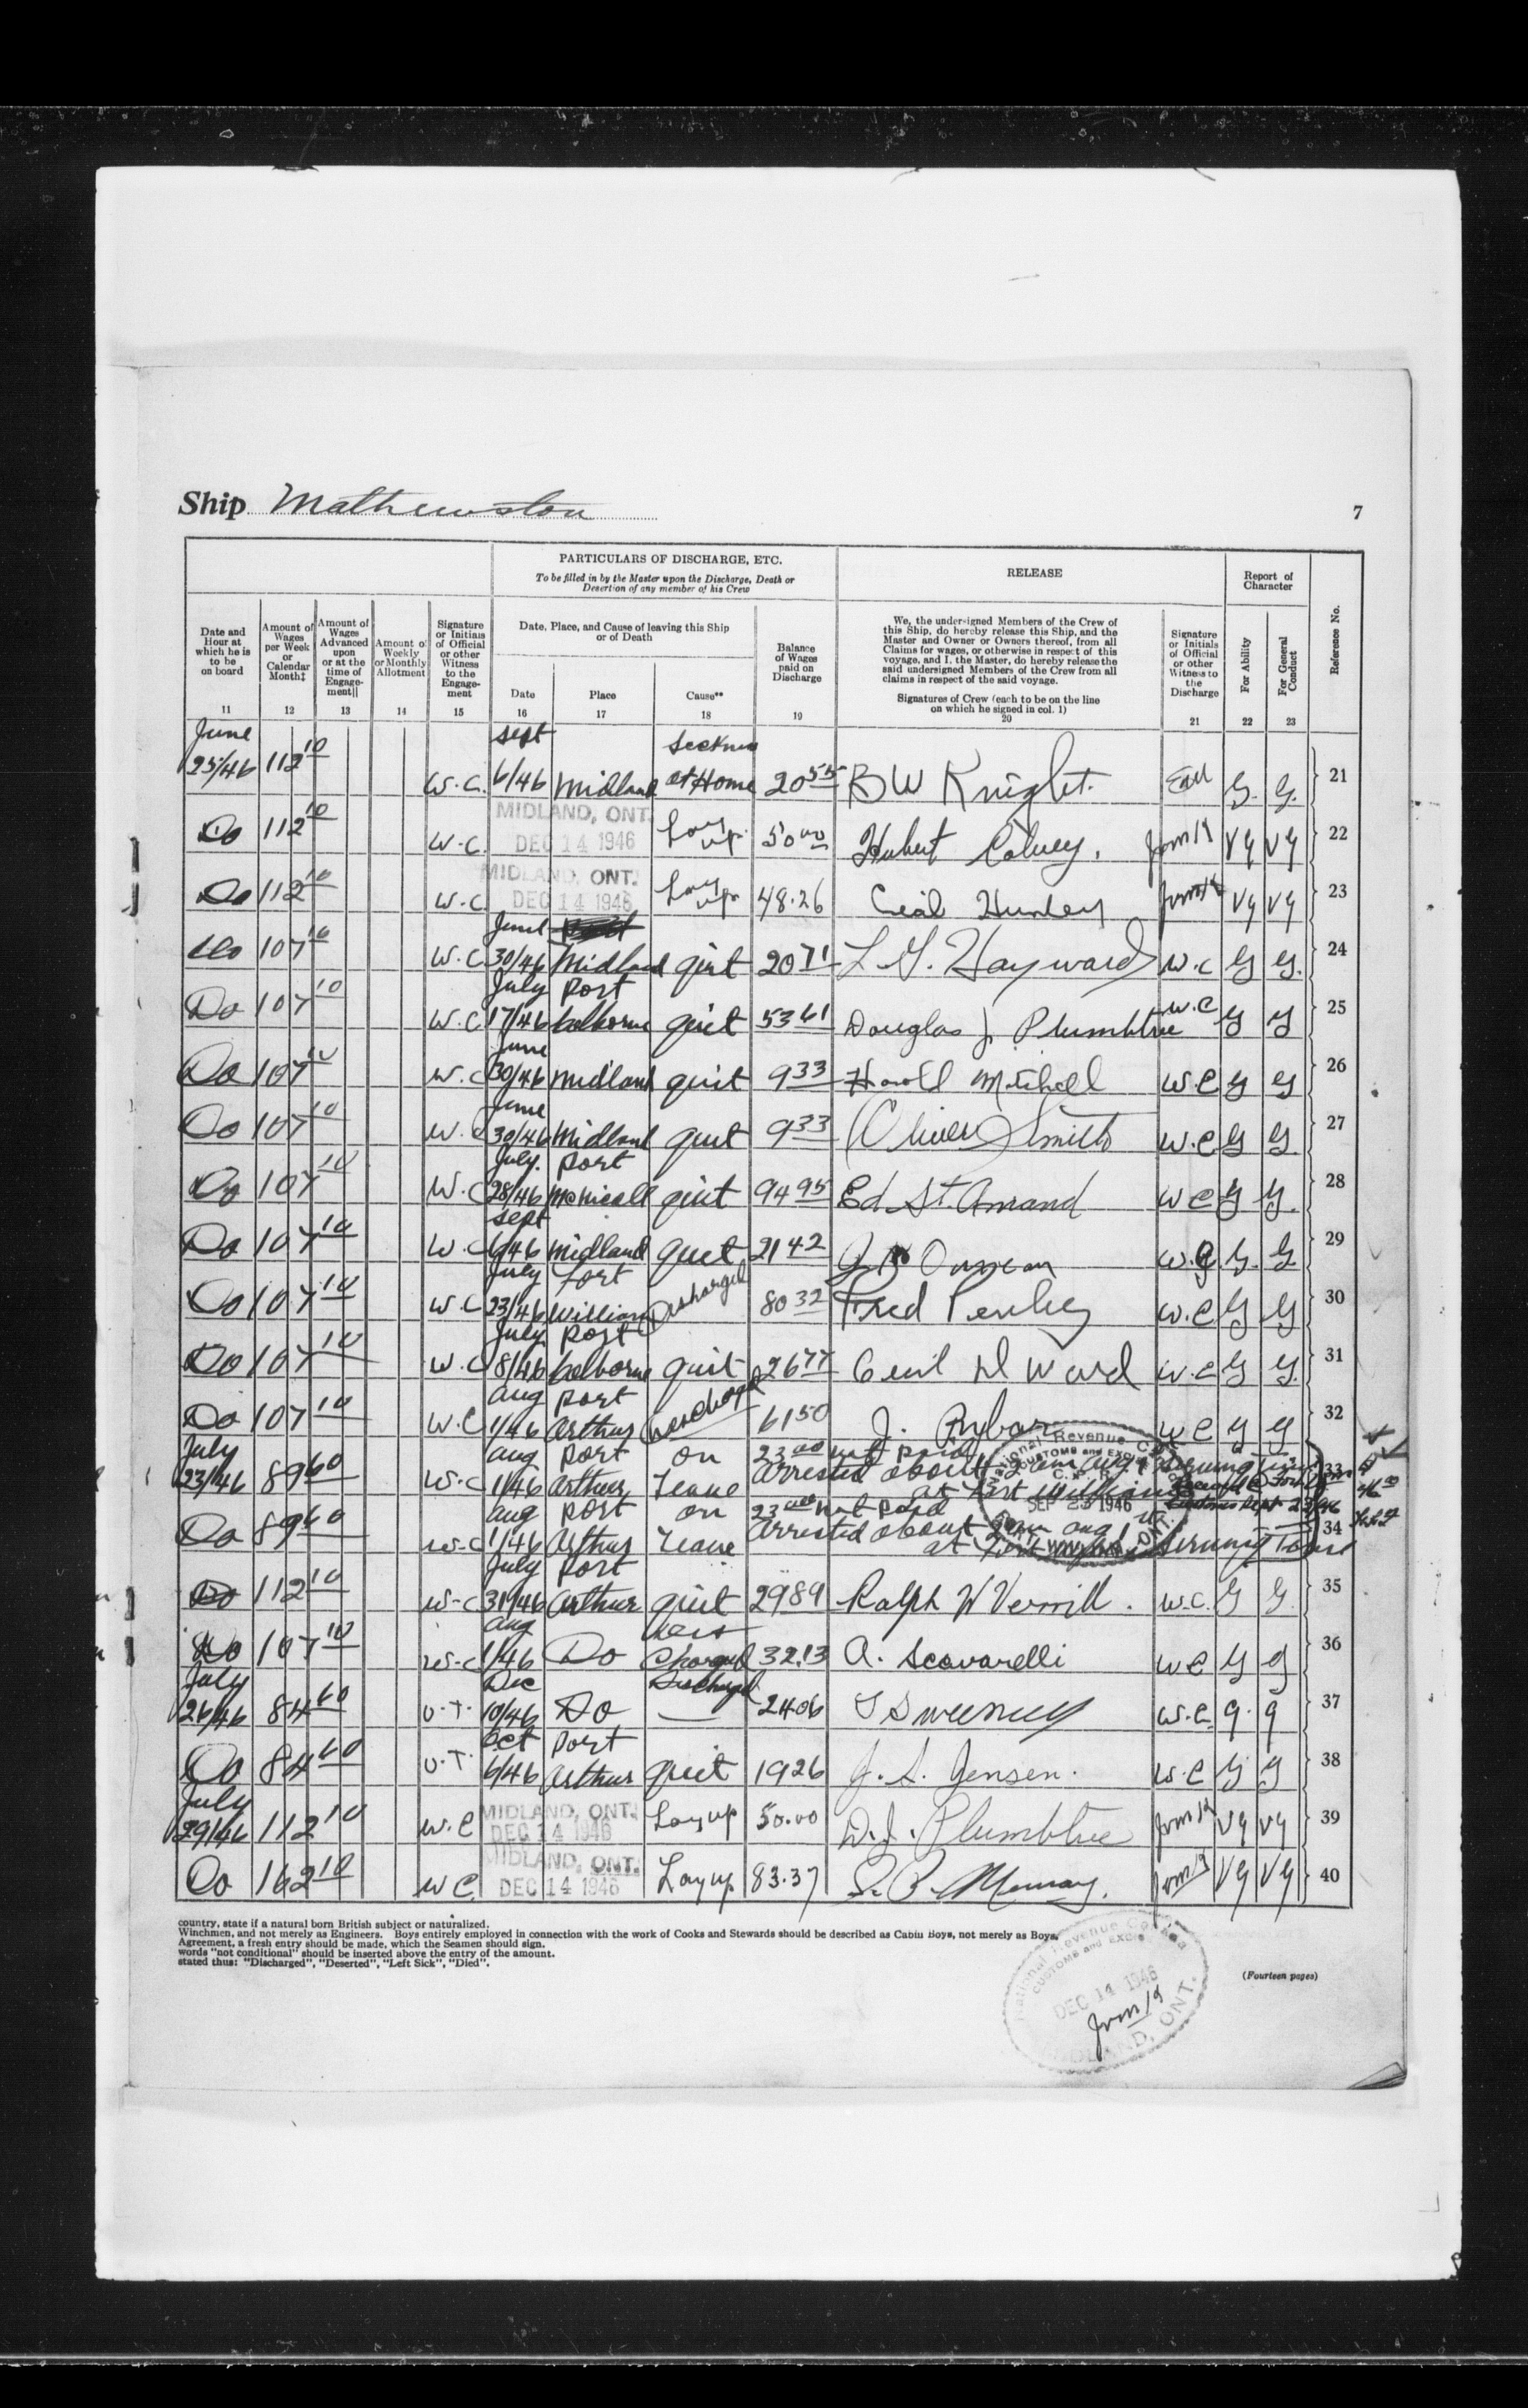 Ship Mathewston
7
PARTICULARS OF DISCHARGE, ETC.
To be filled in by the Master upon the Discharge, Death or Desertion of any member of his Crew
RELEASE
Report of Character
Reference No.
Date and Hour at which he is to be on board
Amount of Wages per Week or Calendar Month‡
Amount of Wages Advanced upon or at the time of Engagement||
Amount of Weekly or Monthly Allotment
Signature or Initials of Official or other Witness to the Engagement
Date, Place, and Cause of leaving this Ship or of Death
Date
Place
Cause**
Balance of Wages paid on Discharge
We, the undersigned Members of the Crew of this Ship, do hereby release this Ship, and the Master and Owner or Owners thereof, from all Claims for wages, or otherwise in respect of this voyage, and I, the Master, do hereby release the said undersigned Members of the Crew from all claims in respect of the said voyage.
Signatures of Crew (each to be on the line on which he signed in col. 1)
Signature or Initials of Official or other Witness to the Discharge
For Ability
For General Conduct
11 12 13 14 15 16 17 18 19 20 21 22 23
June 25/46 112 10 W.C. Sept 6/46 Midland at Home 20 55 B W Knight G. G. 21
Do 112 10 W.C. MIDLAND, ONT. DEC 14 1946 Lay up 50 00 Hubert VG VG 22
Do 112 10 W.C. MIDLAND, ONT. DEC 14 1946 Lay up 48.26 VG VG 23
Do 107 10 W.C. June 30/46 Midland quit 20 71 L. G. Hayward W.C G G. 24
Do 107 10 W.C July 17/46 Port Colborne quit 53 61 Douglas J. Plumbtree W.C G G 25
Do 107 10 W.C June 30/46 Midland quit 9 33 Harold Mitchell W.C G G 26
Do 107 10 W.C June 30/46 Midland quit 9 33 Oliver Smith W.C G G. 27
Do 107 10 W.C July 28/46 Port McNicoll quit 94 95 Ed St. Amand W C G G. 28
Do 107 10 W.C Sept 6/46 Midland quit 21 42 W.C G. G. 29
Do 107 10 W.C July 23/46 Fort William Discharged 80 32 Fred W.C G G 30
Do 107 10 W.C July 18/46 Port Colborne quit 26 77 Ward W.C G G. 31
Do 107 10 W.C Aug 1/46 Port Arthur 61 50 J. Rybar W C G G 32
July 23/46 89 60 W.C Aug 1/46 Port Arthur on Leave 23 00 not paid Arrested about 2 am Aug 1 at Fort William serving time 33
Do 89 60 W.C Aug 1/46 Port Arthur on Leave 23 00 not paid Arrested about Aug 1 at Fort William Serving Time 34
National Revenue Canada CUSTOMS and EXCISE SEP 23 1946 ONT.
Do 112 10 W.C July 31/46 Port Arthur quit 29 89 Ralph W Verrill. W.C. G G. 35
Do 107 10 W.C Aug 1/46 Do Discharged 32.13 A. Scavarelli W C G G 36
July 26/46 84 60 O.T. Dec 10/46 Do Discharged 24 06 Sweeney W.C. G. G 37
Do 84 60 O.T. Oct 6/46 Port Arthur quit 19 26 J. S. Jensen. W.C G G 38
July 29/46 112 10 W.C MIDLAND, ONT. DEC 14 1946 Lay up 50.00 D.J. Plumbtree VG VG 39
Do 162 10 W C. MIDLAND, ONT. DEC 14 1946 Lay up 83.37 Murray. VG VG 40
country, state if a natural born British subject or naturalized.
Winchmen, and not merely as Engineers. Boys entirely employed in connection with the work of Cooks and Stewards should be described as Cabin Boys, not merely as Boys.
Agreement, a fresh entry should be made, which the Seamen should sign.
words "not conditional" should be inserted above the entry of the amount.
stated thus: "Discharged", "Deserted", "Left Sick", "Died".
(Fourteen pages)
National Revenue Canada
CUSTOMS and EXCISE
DEC 14 1946
MIDLAND, ONT.